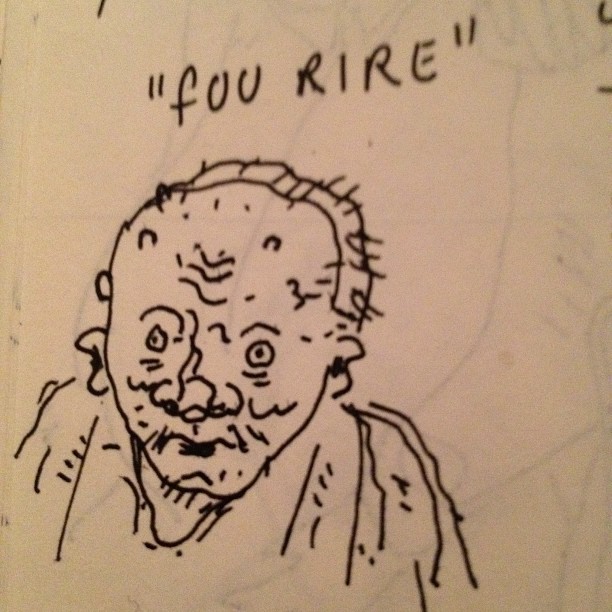 "fOU RIRE"